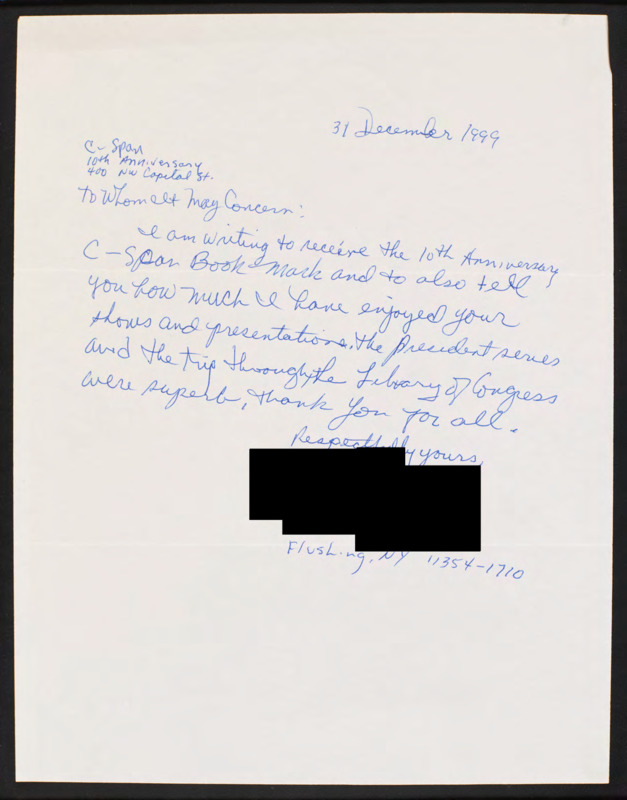 31 December 1999
C-Span
10th Anniversary
400 NW Capital St.
To Whom It May Concern:
I am writing to receive the 10th Anniversary
C-Span Book Mark and to also tell
you how much I have enjoyed your
shows and presentations. The President series
and the trip through the Library of Congress
were superb, thank you for all.
Respectfully yours,
Flushing, NY 11354-1710